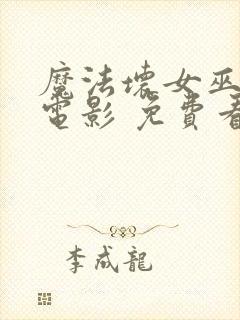 魔法壞女巫
電影 免費看
李成龍